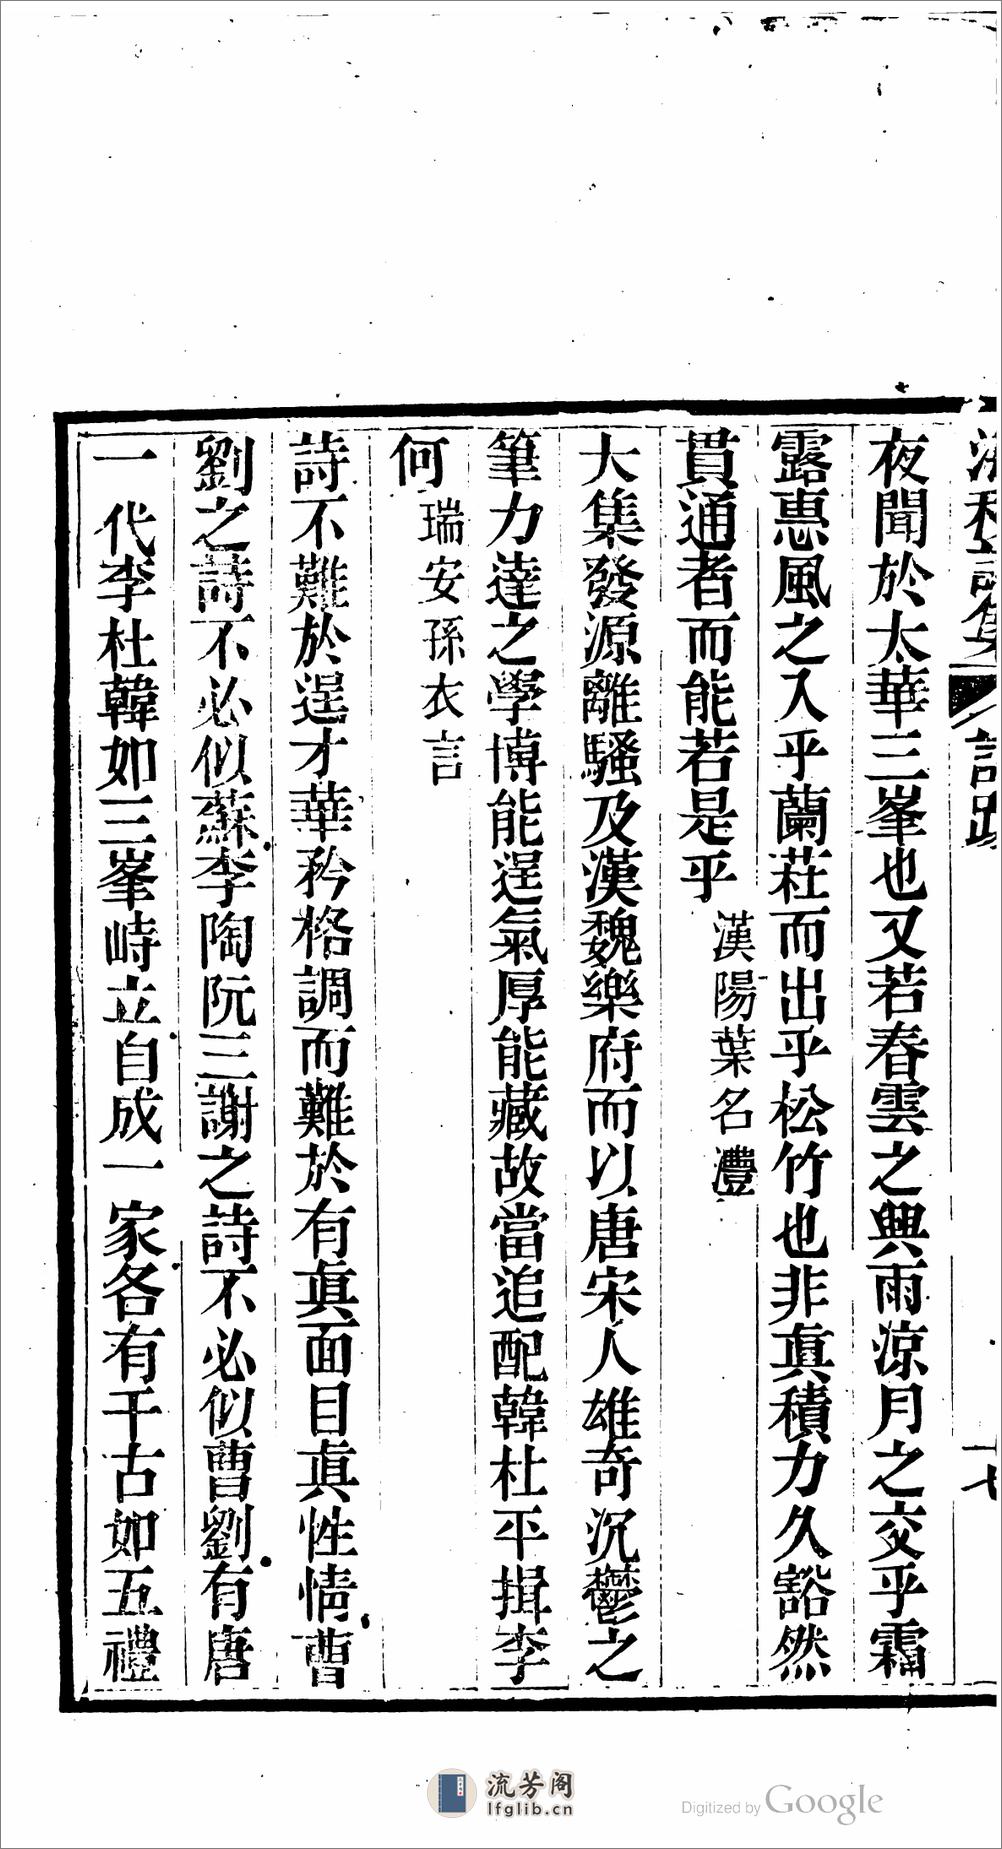 夜聞於太華三峯也又若春雲之興雨涼月之交乎霜
露惠風之入乎蘭荘而出乎松竹也非眞積力久豁然
貫通者而能若是乎 漢陽葉名灃
大集發源離騷及漢魏樂府而以唐宋人雄奇沉鬱之
筆力達之學博能逞氣厚能藏故當追配韓杜平揖李
何 瑞安孫衣言
詩不難於逞才華矜格調而難於有眞面目眞性情曹
劉之詩不必似蘇李陶阮三謝之詩不必似曹劉有唐
一代李杜韓如三峯峙立自成一家各有千古如五禮
流芳阁
lfglib.cn
Digitized by Google